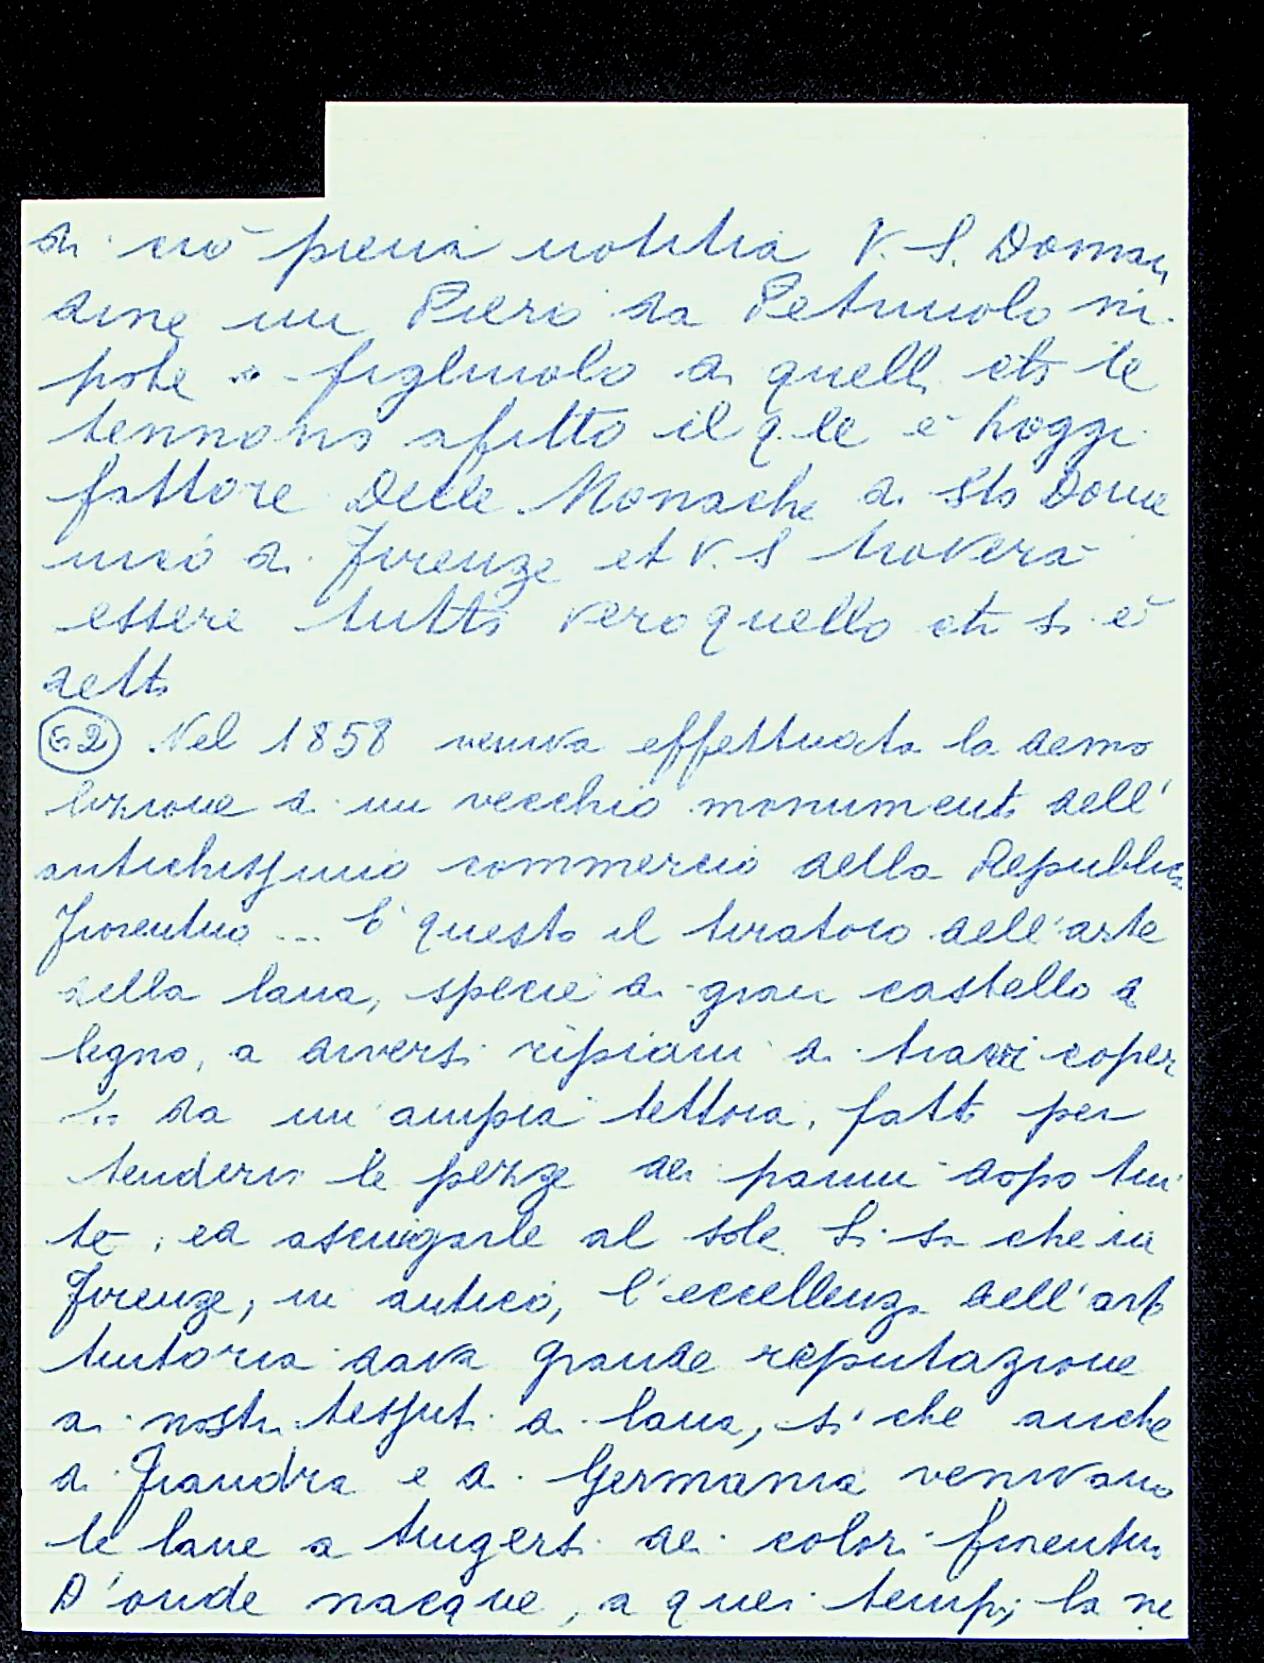 di ciò piena notitia V. S. Doman
dine un Piero da Petriuolo ni-
pote o figliuolo di quelli che le
tennono afitto il q.le è hoggi
fattore Delle Monache di Sto Dome
nico di Firenze et V. S troverà
essere tutto vero quello che si è
detto
62 Nel 1858 veniva effettuata la demo
lizione di un vecchio monumento dell'
antichissimo commercio della Republica
Fiorentina ... E' questo il tiratoio dell'arte
della lana, specie di gran castello di
legno, a diversi ripiani di travi coper
to da un'ampia tettoia, fatto per
tendervi le pezze dei panni dopo tin
te, ed asciugarle al sole. Si sa che in
Firenze, in antico, l'eccellenza dell'arte
tintoria dava grande reputazione
ai nostri tessuti di lana, si' che anche
di Fiandra e di Germania venivano
le lane a tingersi dei colori fiorentini
D'onde nacque, a quei tempi, la ne